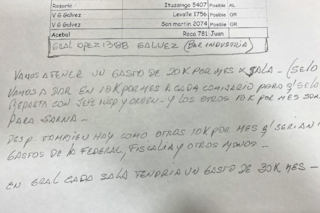 Rosario Ituzaingo 5407 Posible AL
V G Galvez Levalle 1756 Posible GR
V G Galvez San martin 2074 Posible
Acebal Roca 781: Juan
GRAL LOPEZ 1388 GALVEZ (BAR INDUSTRIA)
VAMOS A TENER UN GASTO DE 20K POR MES X SALA - (SE LO
VAMOS A DAR EN 10K POR MES A CADA COMISARIO PARA Q' SE LO
REPARTA CON JEFE INSP Y ORDEN - Y LOS OTROS 10K POR MES SON
PARA
DESP. TAMBIEN HAY COMO OTROS 10K POR MES Q' SERIAN
GASTOS DE LA FEDERAL, FISCALIA Y OTROS
EN GRAL CADA SALA TENDRIA UN GASTO DE 30K MES -